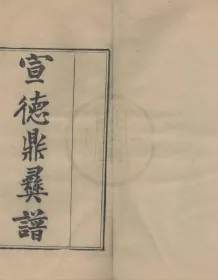 宣德鼎彝譜